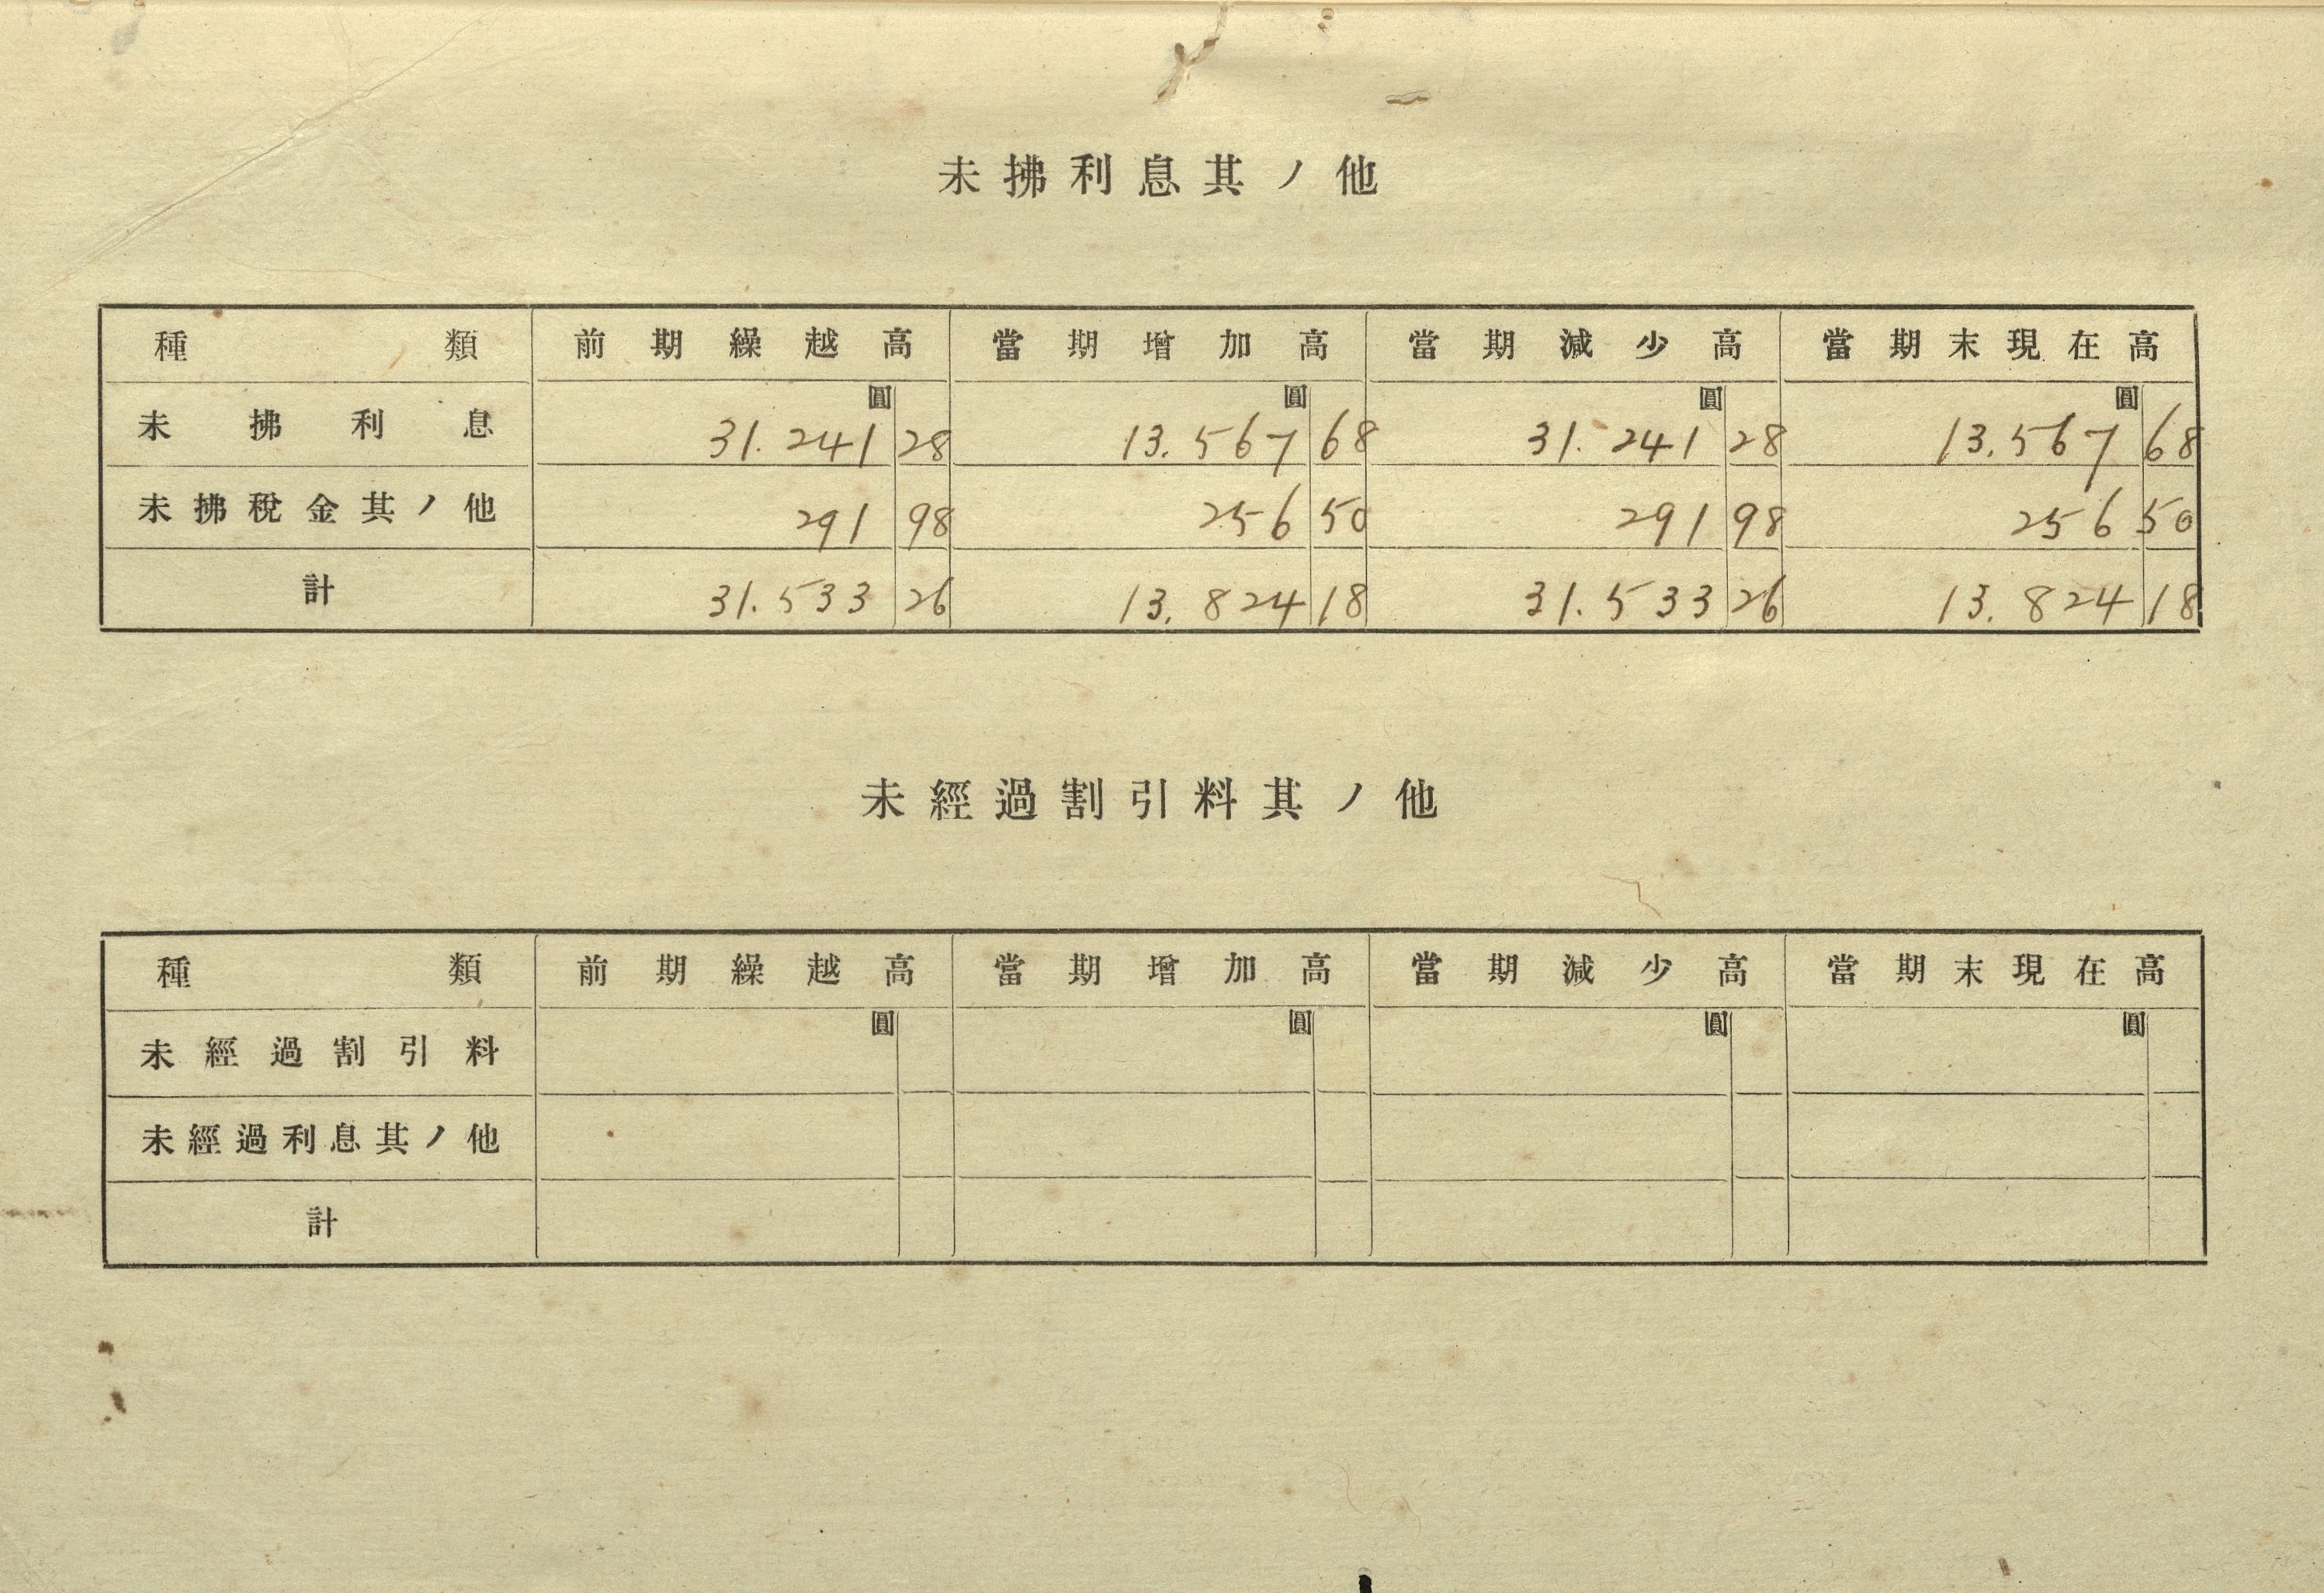 未拂利息其ノ他
種類 前期繰越高 當期增加高 當期減少高 當期末現在高
圓 圓 圓 圓
未拂利息 31.241 28 13.567 68 31.241 28 13.567 68
未拂稅金其ノ他 291 98 256 50 291 98 256 50
計 31.533 26 13.824 18 31.533 26 13.824 18
未經過割引料其ノ他
種類 前期繰越高 當期增加高 當期減少高 當期末現在高
圓 圓 圓 圓
未經過割引料
未經過利息其ノ他
計